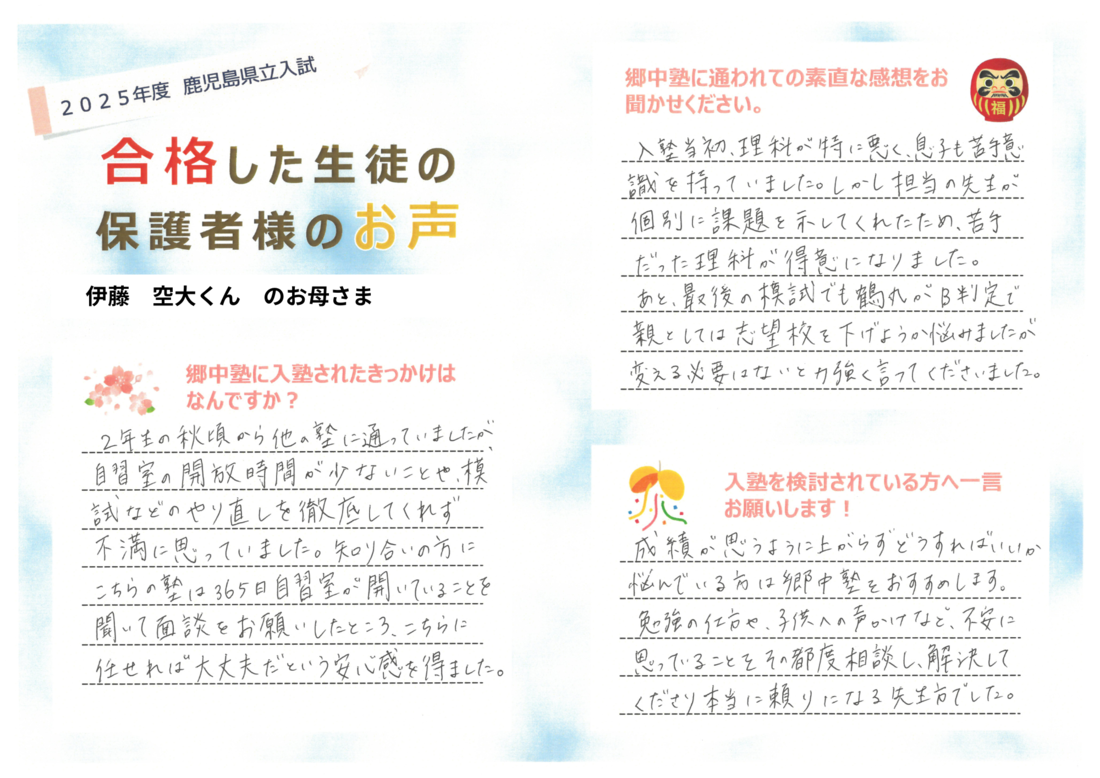 2025年度 鹿児島県立入試
合格した生徒の
保護者様のお声
伊藤 空大くん のお母さま
郷中塾に入塾されたきっかけは
なんですか？
2年生の秋頃から他の塾に通っていましたが、
自習室の開放時間が少ないことや、模
試などのやり直しを徹底してくれず
不満に思っていました。知り合いの方に
こちらの塾は365日自習室が開いていることを
聞いて面談をお願いしたところ、こちらに
任せれば大丈夫だという安心感を得ました。
郷中塾に通われての素直な感想をお
聞かせください。
福
入塾当初、理科が特に悪く、息子も苦手意
識を持っていました。しかし担当の先生が
個別に課題を示してくれたため、苦手
だった理科が得意になりました。
あと、最後の模試でも鶴丸がB判定で
親としては志望校を下げようか悩みましたが
変える必要はないと力強く言ってくださいました。
入塾を検討されている方へ一言
お願いします！
成績が思うように上がらずどうすればいいか
悩んでいる方は郷中塾をおすすめします。
勉強の仕方や、子供への声かけなど、不安に
思っていることをその都度相談し、解決して
くださり本当に頼りになる先生方でした。